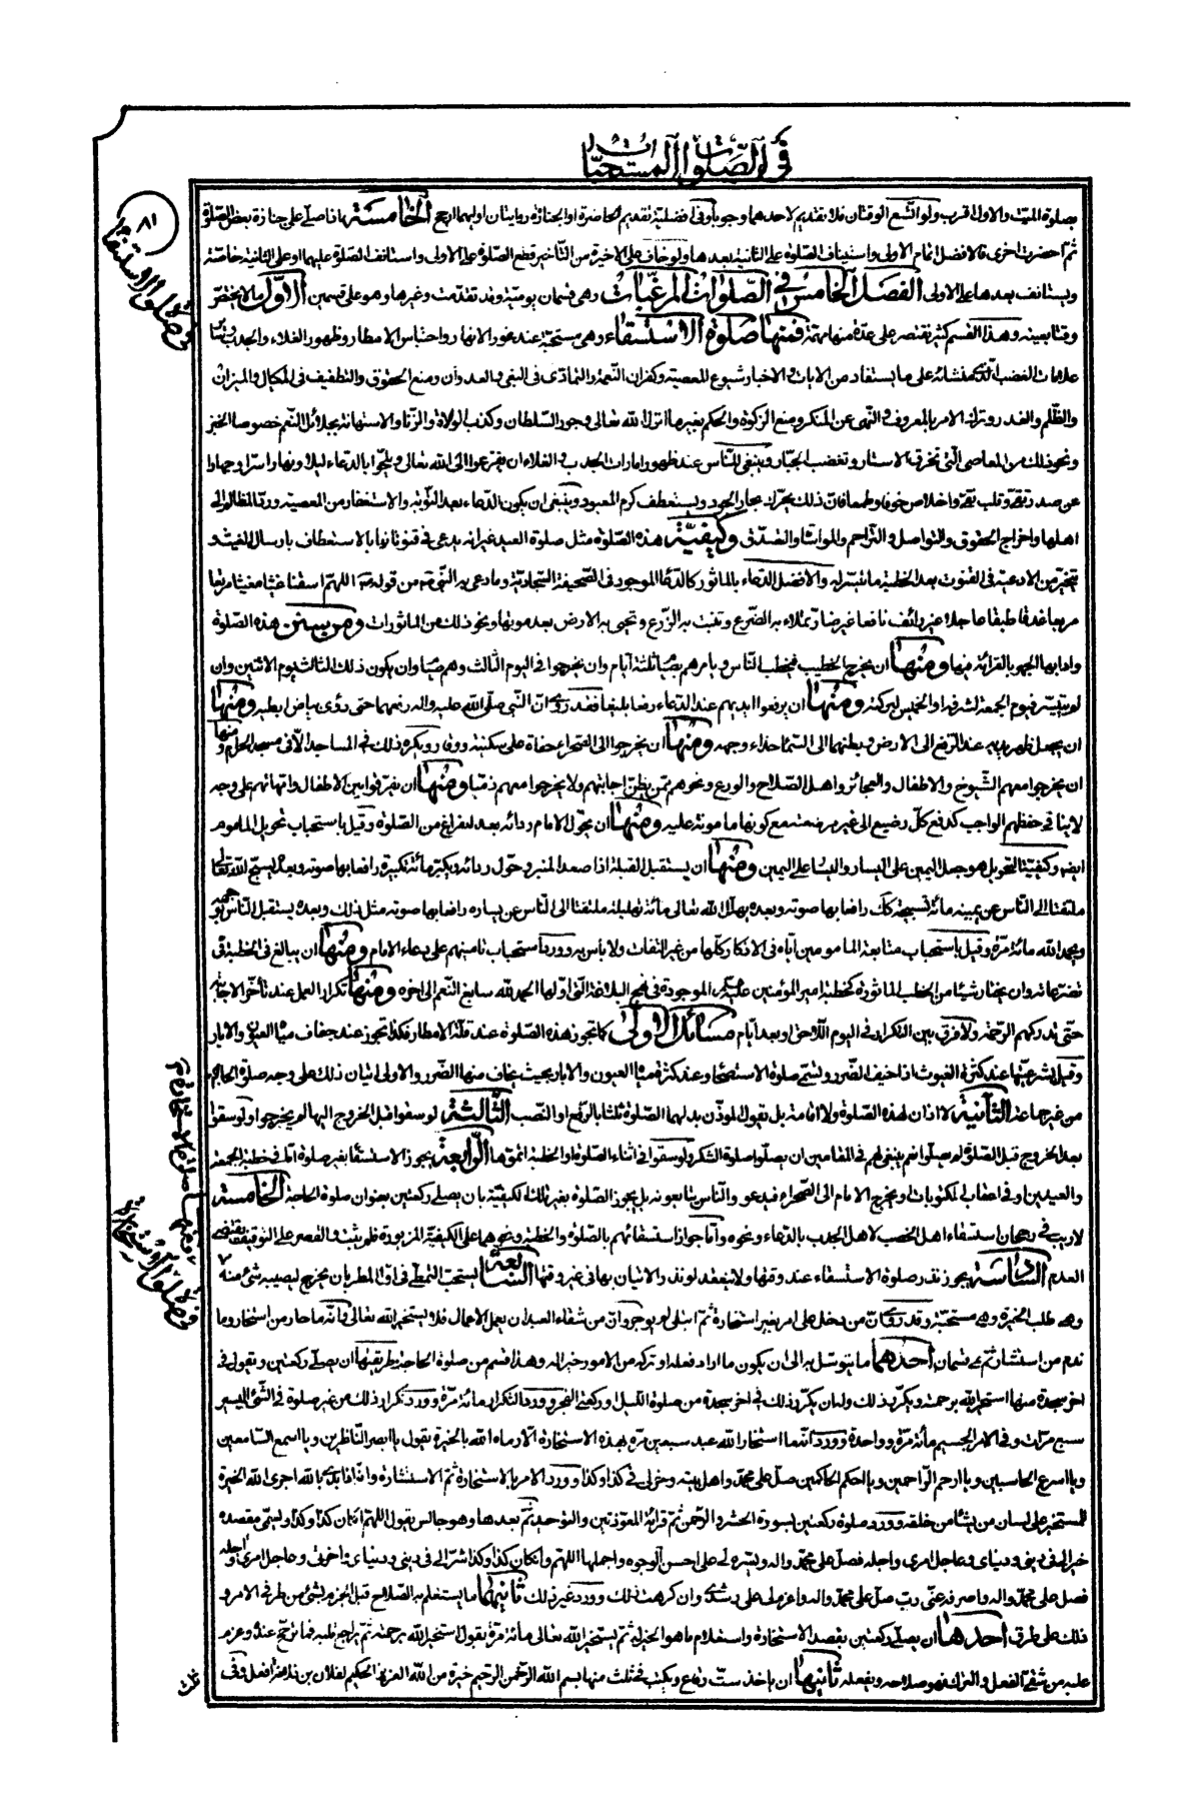 في الصلوات المستحبات
٨١
في صلوة الاستسقاء
بصلوة الميت والاولى اقرب ولو اتسع الوقتان فلا تقديم لاحدهما وجوبا وفي افضلية تقديم الحاضرة او الجنازة روايتان اولهما ارجح الخامسة اذا صلى على جنازة بعض الصلوة
ثم احضرت اخرى فالافضل اتمام الاولى واستيناف الصلوة على الثانية بعدها ولو خاف على الاخيرة من التأخير قطع الصلوة على الاولى واستانف الصلوة عليهما او على الثانية خاصة
ويستانف بعدها على الاولى الفصل الخامس في الصلوات المرغبات وهي قسمان يومية وقد تقدمت وغيرها وهو على قسمين الاول ما لا يختص
وقتا بعينه وهذا القسم كثير نقتصر على عدة منها مهمة فمنها صلوة الاستسقاء وهي مستحبة عند غور الانهار واحتباس الامطار وظهور الغلاء والجدب
علامات الغضب منشائه على ما يستفاد من الايات والاخبار شيوع المعصية وكفران النعمة والتمادي في البغي والعدوان ومنع الحقوق والتطفيف في المكيال والميزان
والظلم والغدر وترك الامر بالمعروف والنهي عن المنكر ومنع الزكوة والحكم بغير ما انزل الله تعالى وجور السلطان وكذب الولاة والزنا والاستهانة بجلائل النعم خصوصا الخبز
ونحو ذلك من المعاصي التي تخرق الاستار وتغضب الجبار وينبغي للناس عند ظهور امارات الجدب والغلاء ان يفزعوا الى الله تعالى ويلجوا بالدعاء ليلا ونهارا سرا وجهارا
عن صدق نية وقلب نقي واخلاص خوفا وطمعا فان ذلك يحرك بحار الجود ويستعطف كرم المعبود وينبغي ان يكون الدعاء بعد التوبة والاستغفار من المعصية ورد المظالم الى
اهلها واخراج الحقوق والتواصل والتراحم والمواساة والتصدق وكيفية هذه الصلوة مثل صلوة العيد غير انه يدعى في قنوتاتها بالاستعطاف بارسال الغيث و
يتخير من الادعية في القنوت بعد الخطبة ما تيسر له والافضل الدعاء بالماثور كالدعاء الموجود في الصحيفة السجادية وما دعى به النبي من قوله اللهم اسقنا غيثا مغيثا مريعا
غدقا طبقا عاجلا غير رائث نافعا غير ضار تملاء به الضرع وتنبت به الزرع وتحيي به الارض بعد موتها ونحو ذلك من الماثورات ومن سنن هذه الصلوة
وادابها الجهر بالقرائة فيها ومنها ان يخرج الخطيب فيخطب الناس ويامرهم بصيام ثلثة ايام وان يخرجوا في اليوم الثالث وهم صيام وان يكون ذلك الثالث يوم الاثنين وان
لم يتيسر فيوم الجمعة لشرفه او الخميس لبركته ومنها ان يرفعوا ايديهم عند الدعاء رفعا بليغا فقد روى ان النبي صلى الله عليه واله رفعهما حتى رؤى بياض ابطيه ومنها
ان يجعل ظهر يديه عند الرفع الى الارض وبطنهما الى السماء حذاء وجهه ومنها ان يخرجوا الى الصحراء حفاة على سكينة ووقار ويكره ذلك في المساجد الا في مسجد الحرام ومنها
ان يخرجوا معهم الشيوخ والاطفال والعجائز واهل الصلاح والورع ونحوهم ممن يظن اجابتهم ولا يخرجوا معهم ذميا ومنها ان يفرقوا بين الاطفال وامهاتهم على وجه
لا ينافي حفظهم الواجب كدفع كل رضيع الى غير مرضعته مع كونها مامونة عليه ومنها ان يحول الامام ردائه بعد الفراغ من الصلوة وقيل باستحباب تحويل الماموم
ايضا وكيفية التحويل هو جعل اليمين على اليسار واليسار على اليمين ومنها ان يستقبل القبلة اذا صعد المنبر وحول ردائه ويكبر مائة تكبيرة رافعا بها صوته وبعده يسبح الله تعالى
ملتفتا الى الناس عن يمينه مائة تسبيحة كك رافعا بها صوته وبعده يهلل الله تعالى مائة تهليلة ملتفتا الى الناس عن يساره رافعا بها صوته مثل ذلك وبعده يستقبل الناس
ويحمد الله مائة مرة وقيل باستحباب متابعة المامومين اياه في الاذكار كلها من غير التفات ولا باس به وورد استحباب تامينهم على دعاء الامام ومنها ان يبالغ في الخطبة في
تضرعاته وان يختار شيئا من الخطب الماثورة كخطبة امير المؤمنين الموجودة في نهج البلاغة التي اولها الحمد لله سابغ النعم الى اخره ومنها تكرار العمل عند تأخر الاجابة
حتى تدركهم الرحمة ولا فرق بين التكرار في اليوم اللاحق وبعد ايام مسائل الاولى كما تجوز هذه الصلوة عند قلة الامطار فكذا تجوز عند جفاف مياه العيون والابار
وقيل بشرعيتها عند كثرة الغيوث اذا خيف الضرر وتسمى صلوة الاستصحاء وعند كثرة مياه العيون والابار بحيث يخاف منها الضرر والاولى اتيان ذلك على وجه صلوة الحاجة
من غيرها الثانية لا اذان لهذه الصلوة ولا اقامة بل يقول المؤذن بدلهما الصلوة ثلثا بالرفع او النصب الثالثة لو سقوا قبل الخروج اليها لم يخرجوا ولو سقوا
بعد الخروج قبل الصلوة لم يصلوا نعم ينبغي لهم في المقامين ان يصلوا صلوة الشكر ولو سقوا في اثناء الصلوة او الخطبة اتموها الرابعة يجوز الاستسقاء بغير صلوة اما في خطبة الجمعة
والعيدين او في اعقاب المكتوبات او يخرج الامام الى الصحراء فيدعو والناس يتابعونه بل يجوز الصلوة بغير تلك الكيفية بان يصلي ركعتين بعنوان صلوة الحاجة الخامسة
لا ريب في رجحان استسقاء اهل الخصب لاهل الجدب بالدعاء ونحوه واما جواز استسقائهم بالصلوة والخطبة ونحوهما على الكيفية المزبورة فلم يثبت والقصر على التوقيف يقتضي
العدم السادسة يجوز نذر صلوة الاستسقاء عند وقتها ولا ينعقد لو نذر الاتيان بها في غير وقتها السابعة يستحب التمطر في اول المطر بان يخرج ليصيبه شيء منه
ومنها صلوة الاستخارة
في صلوة الاستخارة
وهي طلب الخيرة وهي مستحبة وقد روى ان من دخل على امر بغير استخارة ثم ابتلى لم يوجر وان من شقاء العبد ان يعمل الاعمال فلا يستخير الله تعالى وانه ما حار من استخار وما
ندم من استشار ثم هي قسمان احدهما ما يتوسل به الى ان يكون ما اراد فعله او تركه من الامور خيرا له وهذا قسم من صلوة الحاجة وطريقتها ان يصلي ركعتين ويقول في
اخر سجدة منها استخير الله برحمته ويكرر ذلك وله ان يكرر ذلك في اخر سجدة من صلوة الليل وركعتي الفجر وورد التكرار مائة مرة وورد تكرار ذلك من غير صلوة في الشيء اليسير
سبع مرات وفي الامر الجسيم مائة مرة وواحدة وورد انه ما استخار الله عبد سبعين مرة بهذه الاستخارة الا رماه الله بالخيرة يقول يا ابصر الناظرين ويا اسمع السامعين
ويا اسرع الحاسبين ويا ارحم الراحمين ويا احكم الحاكمين صل على محمد واهل بيته وخر لي في كذا وكذا وورد الامر بالاستخارة ثم الاستشارة وانه اذا بدء بالله اجرى الله الخيرة
للمستخير على لسان من يشاء من خلقه وورد صلوة ركعتين بسورة الحشر والرحمن ثم قرائة المعوذتين والتوحيد ثم بعدها وهو جالس يقول اللهم ان كان كذا وكذا ويسمي مقصده
خيرا لي في ديني ودنياي وعاجل امري واجله فصل على محمد واله ويسره لي على احسن الوجوه واجملها اللهم وان كان كذا وكذا شرا لي في ديني ودنياي واخرتي وعاجل امري واجله
فصل على محمد واله واصرفه عني رب صل على محمد واله واعزم لي على رشدي وان كرهت ذلك وورد غير ذلك ثانيهما ما يستعلم به الصلاح قبل العزم بشيء من طرفي الامر و
ذلك على طرق احدها ان يصلي ركعتين بقصد الاستخارة واستعلام ما هو الخير له ثم يستخير الله تعالى مائة مرة يقول استخير الله برحمته ثم يراجع قلبه فما ترجح عنده وعزم
عليه من شقي الفعل والترك فهو صلاحه ويفعله ثانيها ان ياخذ ست رقاع ويكتب في ثلث منها بسم الله الرحمن الرحيم خيرة من الله العزيز الحكيم لفلان بن فلانة افعل وفي
ثلث